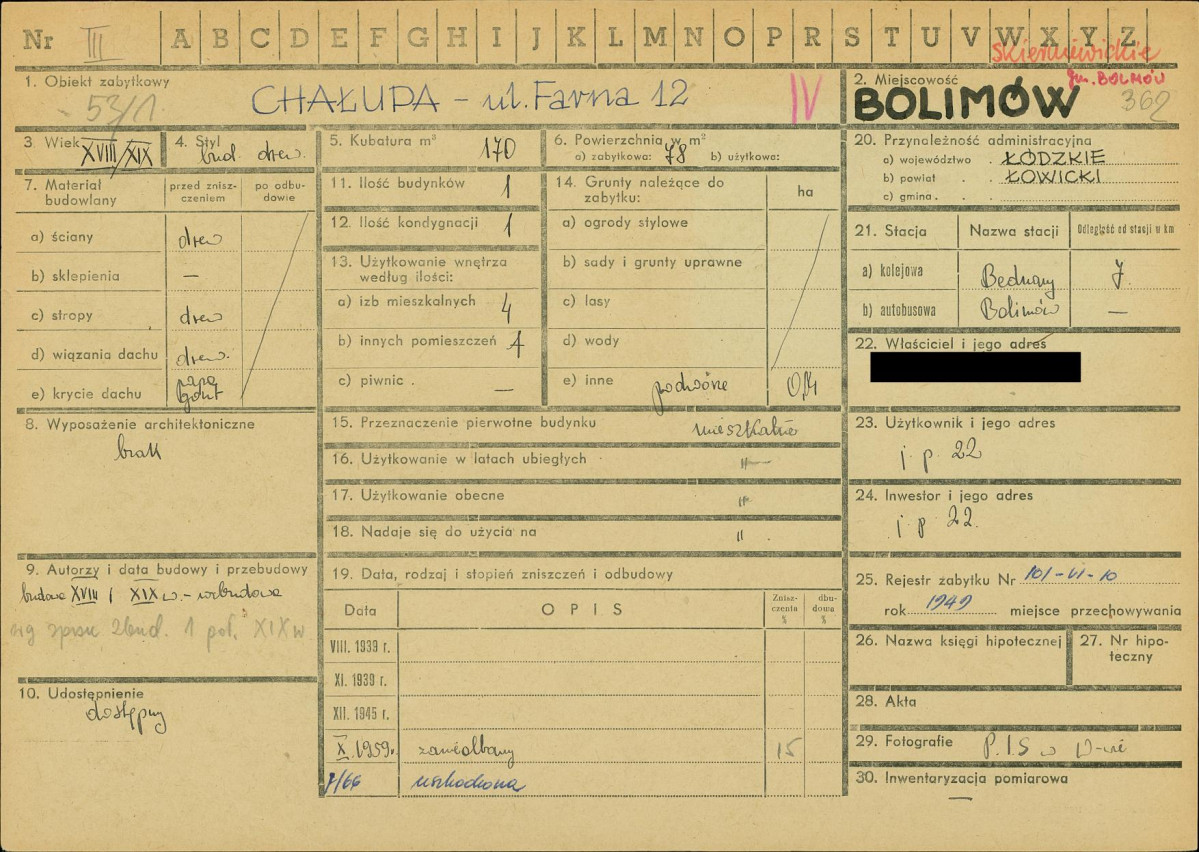 Nr III A B C D E F G H I J K L M N O P R S T U V W X Y Z
skierniewickie
gm. BOLIMÓW
1. Obiekt zabytkowy
53/1
CHAŁUPA – ul. Farna 12
IV
2. Miejscowość
BOLIMÓW
362
3. Wiek XVIII/XIX
4. Styl bud. drew.
5. Kubatura m³ 170
6. Powierzchnia w m²
a) zabytkowa: 78 b) użytkowa:
7. Materiał budowlany
przed zniszczeniem
po odbudowie
a) ściany drew
b) sklepienia —
c) stropy drew
d) wiązania dachu drew.
e) krycie dachu papa gont
8. Wyposażenie architektoniczne
brak
9. Autorzy i data budowy i przebudowy
budowa XVIII / XIX w. –
XIX w
10. Udostępnienie
dostępny
11. Ilość budynków 1
12. Ilość kondygnacji 1
13. Użytkowanie wnętrza
według ilości:
a) izb mieszkalnych 4
b) innych pomieszczeń 1
c) piwnic . —
14. Grunty należące do
zabytku:
ha
a) ogrody stylowe
b) sady i grunty uprawne
c) lasy
d) wody
e) inne podwórze 0,14
15. Przeznaczenie pierwotne budynku mieszkalne
16. Użytkowanie w latach ubiegłych —"—
17. Użytkowanie obecne "
18. Nadaje się do użycia na "
19. Data, rodzaj i stopień zniszczeń i odbudowy
Data OPIS Zniszczenia % dbudowa %
VIII. 1939 r.
XI. 1939 r.
XII. 1945 r.
X. 1959r. zaniedbany 15
7/66 uszkodzona
20. Przynależność administracyjna
a) województwo . ŁÓDZKIE
b) powiat . . ŁOWICKI
c) gmina . . .
21. Stacja Nazwa stacji Odległość od stacji w km
a) kolejowa Bednary 7.
b) autobusowa Bolimów —
22. Właściciel i jego adres
23. Użytkownik i jego adres
j. p. 22
24. Inwestor i jego adres
j. p 22.
25. Rejestr zabytku Nr 101-VI-10
rok 1949 miejsce przechowywania
26. Nazwa księgi hipotecznej
27. Nr hipoteczny
28. Akta
29. Fotografie P.I.S w W-wie
30. Inwentaryzacja pomiarowa
—